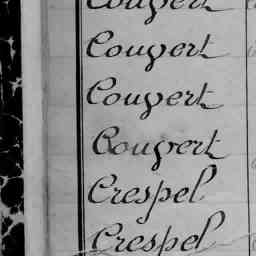 Coupert
Coupert
Coupert
Coupert
Crespel
Crespel